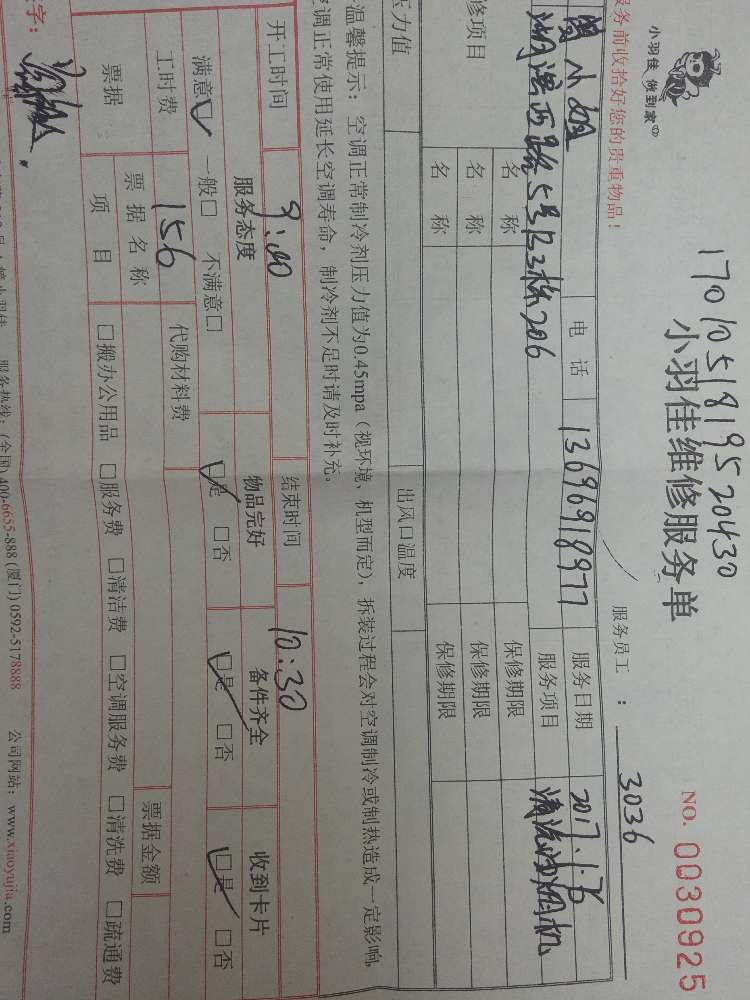 小羽佳 做到家
17010518195 20430
小羽佳维修服务单
NO. 0030925
服务前收拾好您的贵重物品！
服务员工 ： 3036
小姐 电 话 13696918977 服务日期 2017.1.26
湖滨西路5号区3栋206 服务项目 清洗油烟机
修项目 名 称 保修期限
名 称 保修期限
名 称 保修期限
压力值 出风口温度
温馨提示：空调正常制冷剂压力值为0.45mpa（视环境、机型而定），拆装过程会对空调制冷或制热造成一定影响,
空调正常使用延长空调寿命，制冷剂不足时请及时补充。
开工时间 9:00 结束时间 10:30
服务态度 物品完好 备件齐全 收到卡片
满意☑ 一般□ 不满意□ ☑是 □否 ☑是 □否 ☑是 □否
工时费 156 代购材料费
票据 票据名称 票据金额
项 目 □搬办公用品 □服务费 □清洁费 □空调服务费 □清洗费 □疏通费
字：
服务热线：(全国) 400-6655-888 (厦门) 0592-5178888 公司网站：www.xiaoyujia.com